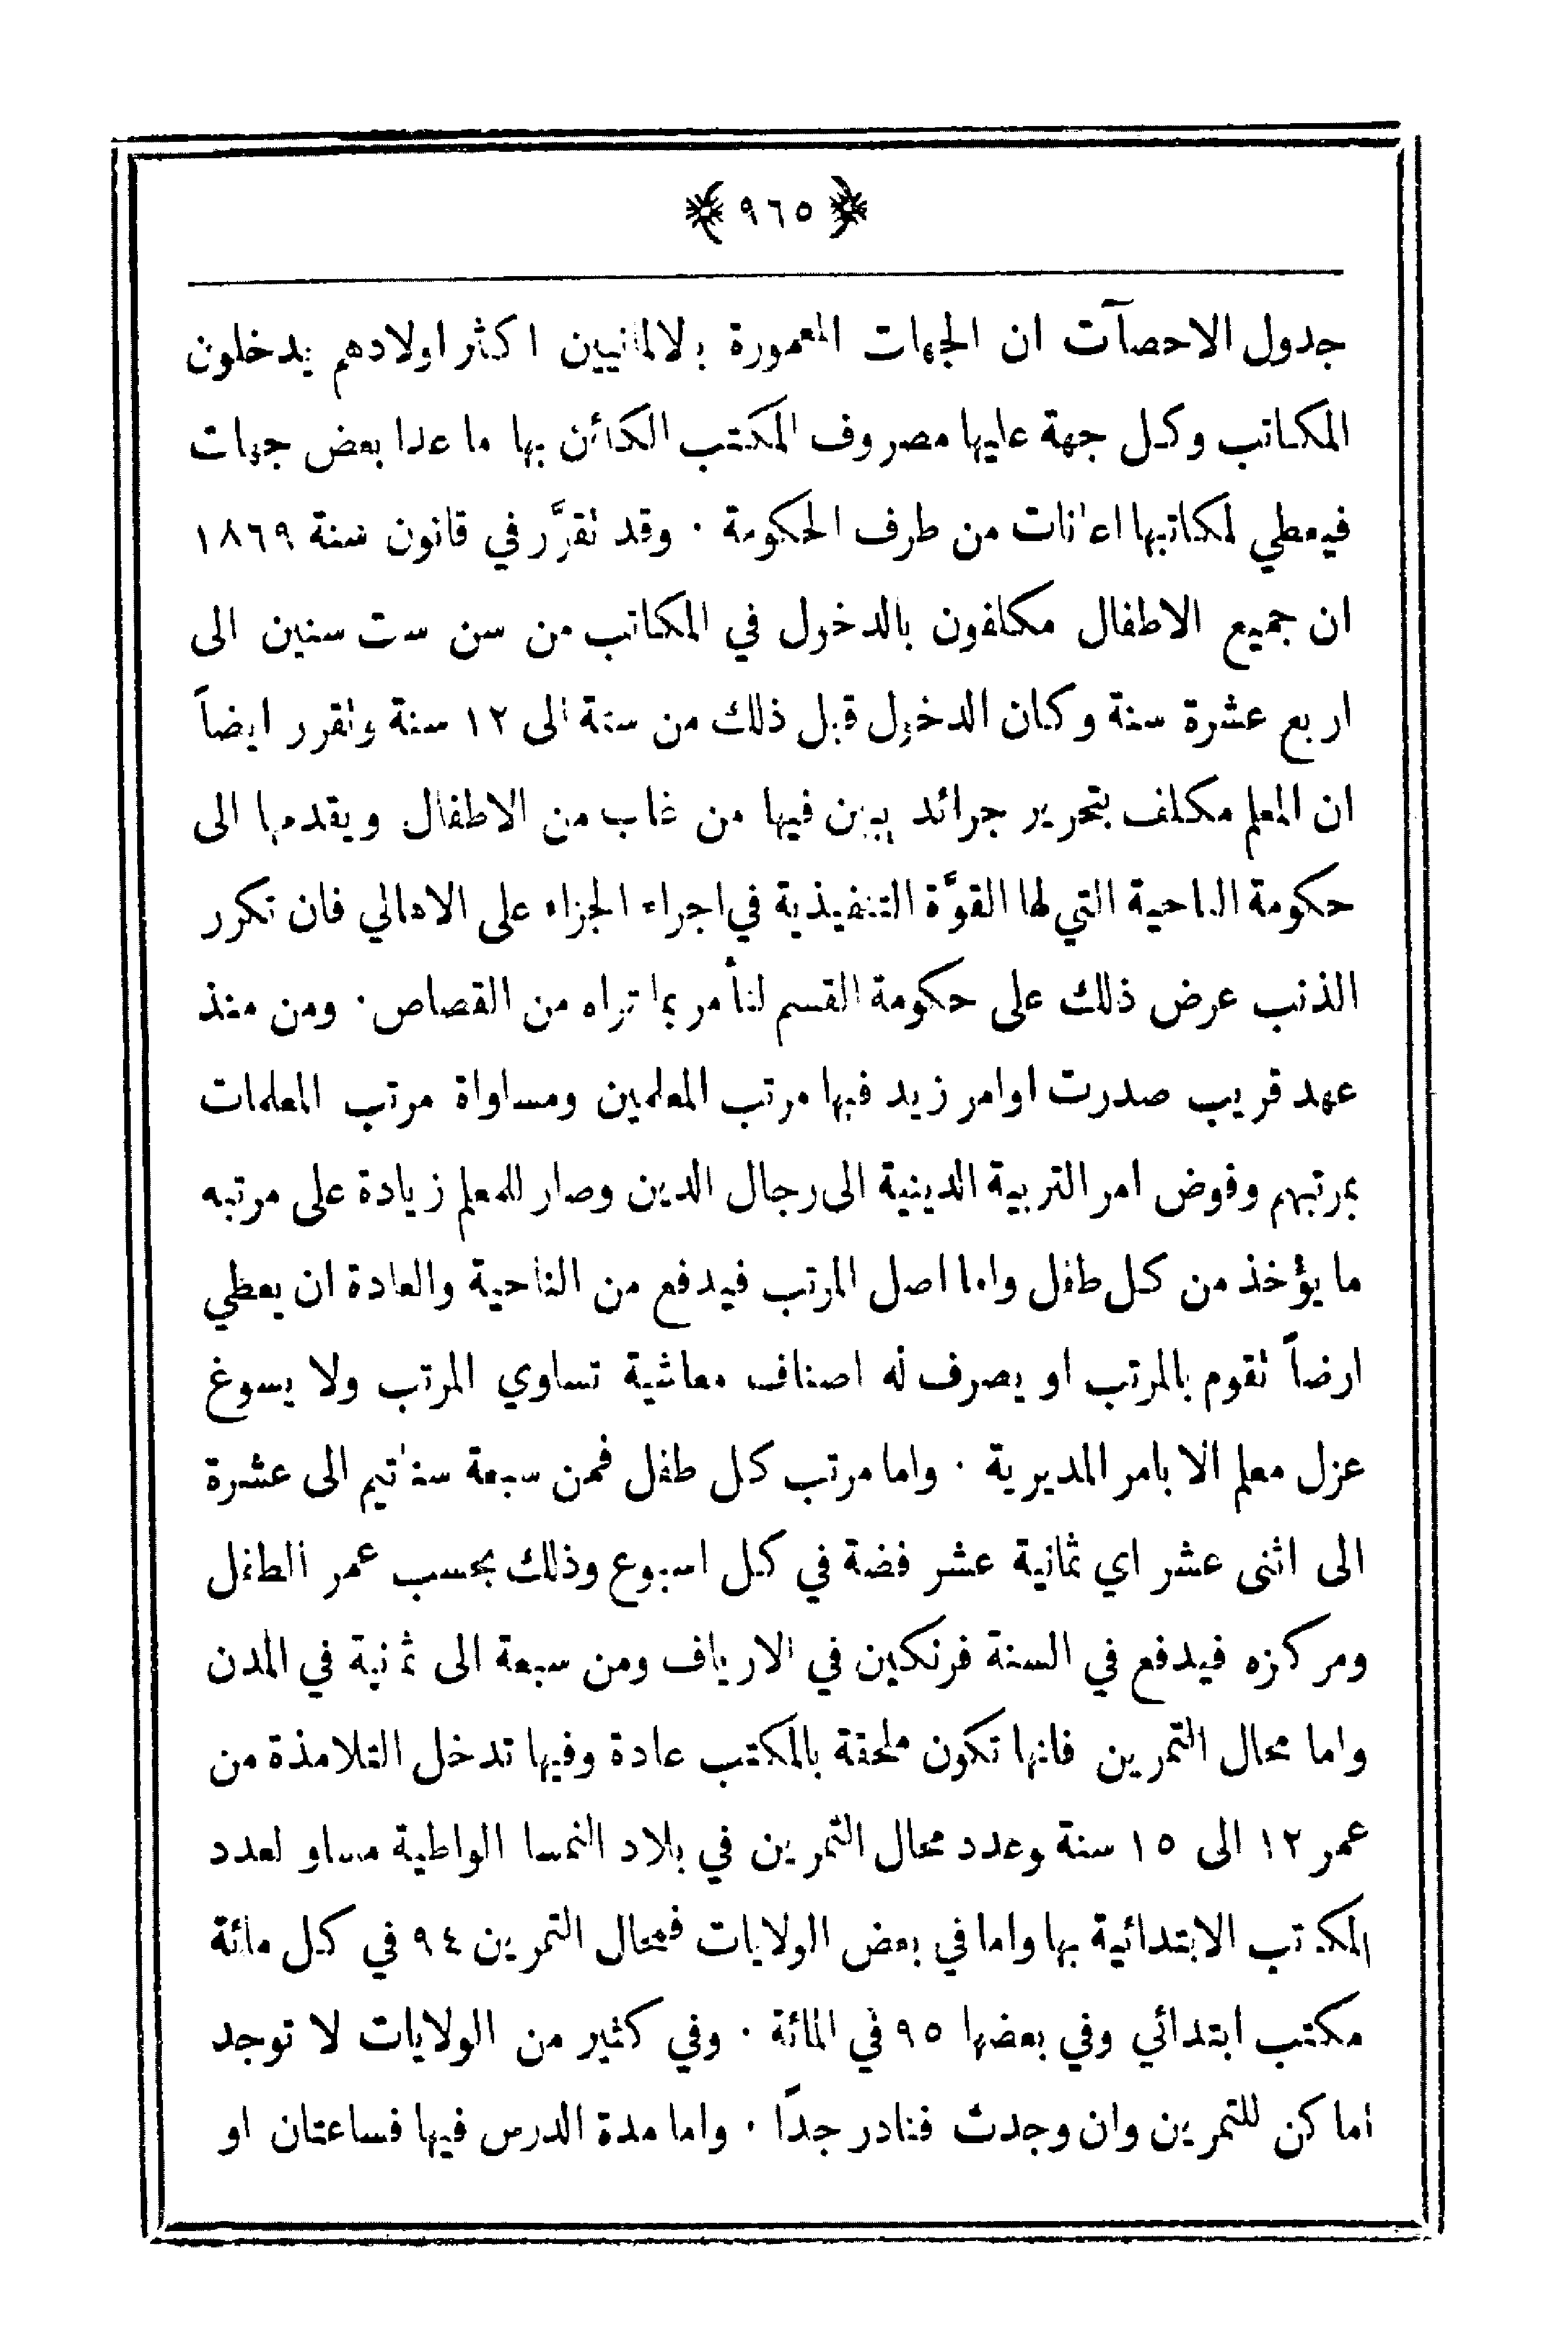 ﴿ ٩٦٥ ﴾
جدول الاحصآت ان الجهات المعمورة بالالمانيين اكثر اولادهم يدخلون
المكاتب وكل جهة عليها مصروف المكتب الكائن بها ما عدا بعض جهات
فيعطي لمكاتبها اعانات من طرف الحكومة ٠ وقد نقرَّر في قانون سنة ١٨٦٩
ان جميع الاطفال مكلفون بالدخول في المكاتب من سن ست سنين الى
اربع عشرة سنة وكان الدخول قبل ذلك من ستة الى ١٢ سنة ونقرر ايضاً
ان المعلم مكلف بتحرير جرائد يبين فيها من غاب من الاطفال ويقدمها الى
حكومة الناحية التي لها القوَّة التنفيذية في اجراء الجزاء على الاهالي فان تكرر
الذنب عرض ذلك على حكومة القسم لتأمر بما تراه من القصاص ٠ ومن منذ
عهد قريب صدرت اوامر زيد فيها مرتب المعلمين ومساواة مرتب المعلمات
بمرتبهم وفوض امر التربية الدينية الى رجال الدين وصار للمعلم زيادة على مرتبه
ما يؤخذ من كل طفل واما اصل المرتب فيدفع من الناحية والعادة ان يعطي
ارضاً نقوم بالمرتب او يصرف له اصناف معاشية تساوي المرتب ولا يسوغ
عزل معلم الا بامر المديرية ٠ واما مرتب كل طفل فمن سبعة سناتيم الى عشرة
الى اثنى عشر اي ثمانية عشر فضة في كل اسبوع وذلك بحسب عمر الطفل
ومركزه فيدفع في السنة فرنكين في الارياف ومن سبعة الى ثمانية في المدن
واما محال التمرين فانها تكون ملحقة بالمكتب عادة وفيها تدخل التلامذة من
عمر ١٢ الى ١٥ سنة وعدد محال التمرين في بلاد النمسا الواطية مساو لعدد
المكاتب الابتدائية بها واما في بعض الولايات فمحال التمرين ٩٤ في كل مائة
مكتب ابتدائي وفي بعضها ٩٥ في المائة ٠ وفي كثير من الولايات لا توجد
اماكن للتمرين وان وجدت فنادر جدًا ٠ واما مدة الدرس فيها فساعتان او